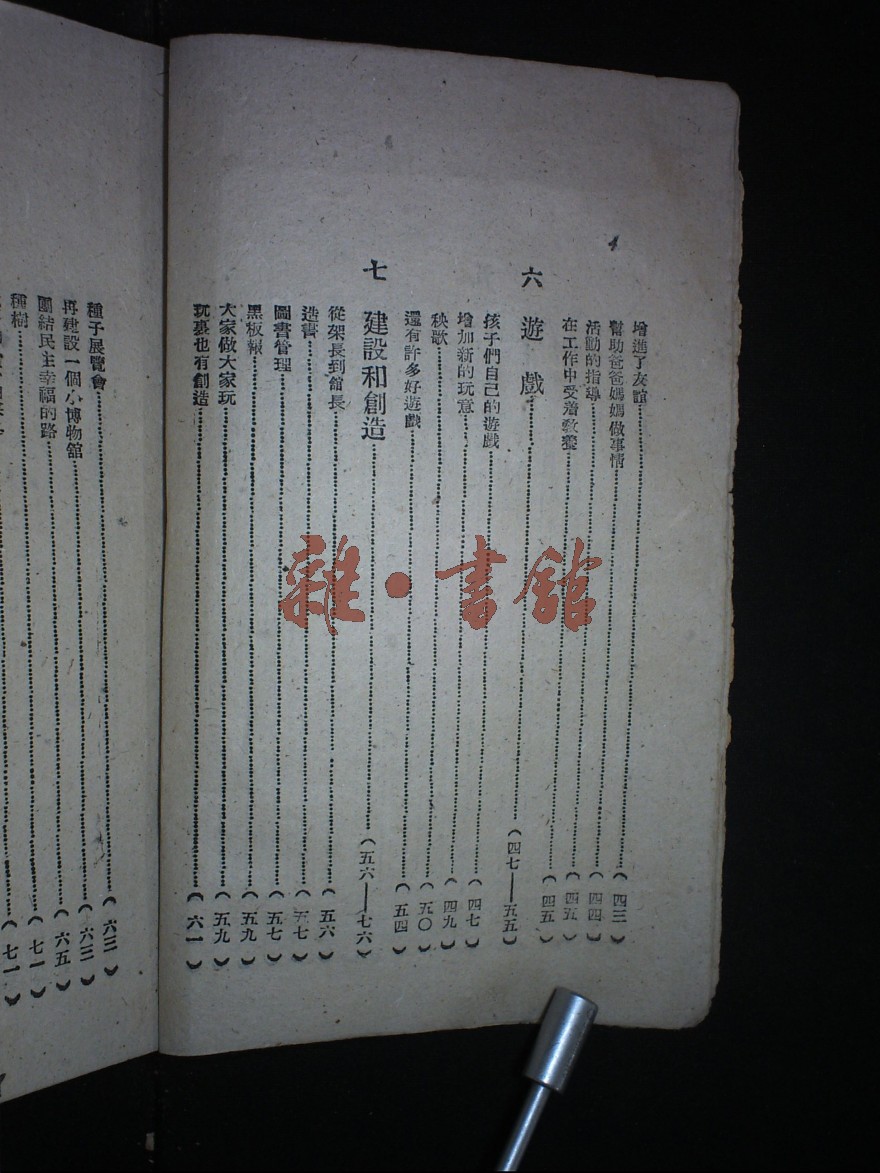 增進了友誼……（四三）
幫助爸爸媽媽做事情……（四四）
活動的指導……（四四）
在工作中受着敎養……（四五）
六 遊戲……（四七——五五）
孩子們自己的遊戲……（四七）
增加新的玩意……（四九）
秧歌……（五〇）
還有許多好遊戲……（五四）
七 建設和創造……（五六——七六）
從架長到館長……（五六）
造書……（五七）
圖書管理……（五七）
黑板報……（五九）
大家做大家玩……（五九）
玩裏也有創造……（六一）
種子展覽會……（六三）
再建設一個小博物舘……（六三）
團結民主幸福的路……（六五）
種樹……（七一）
（七一）
雜·書館